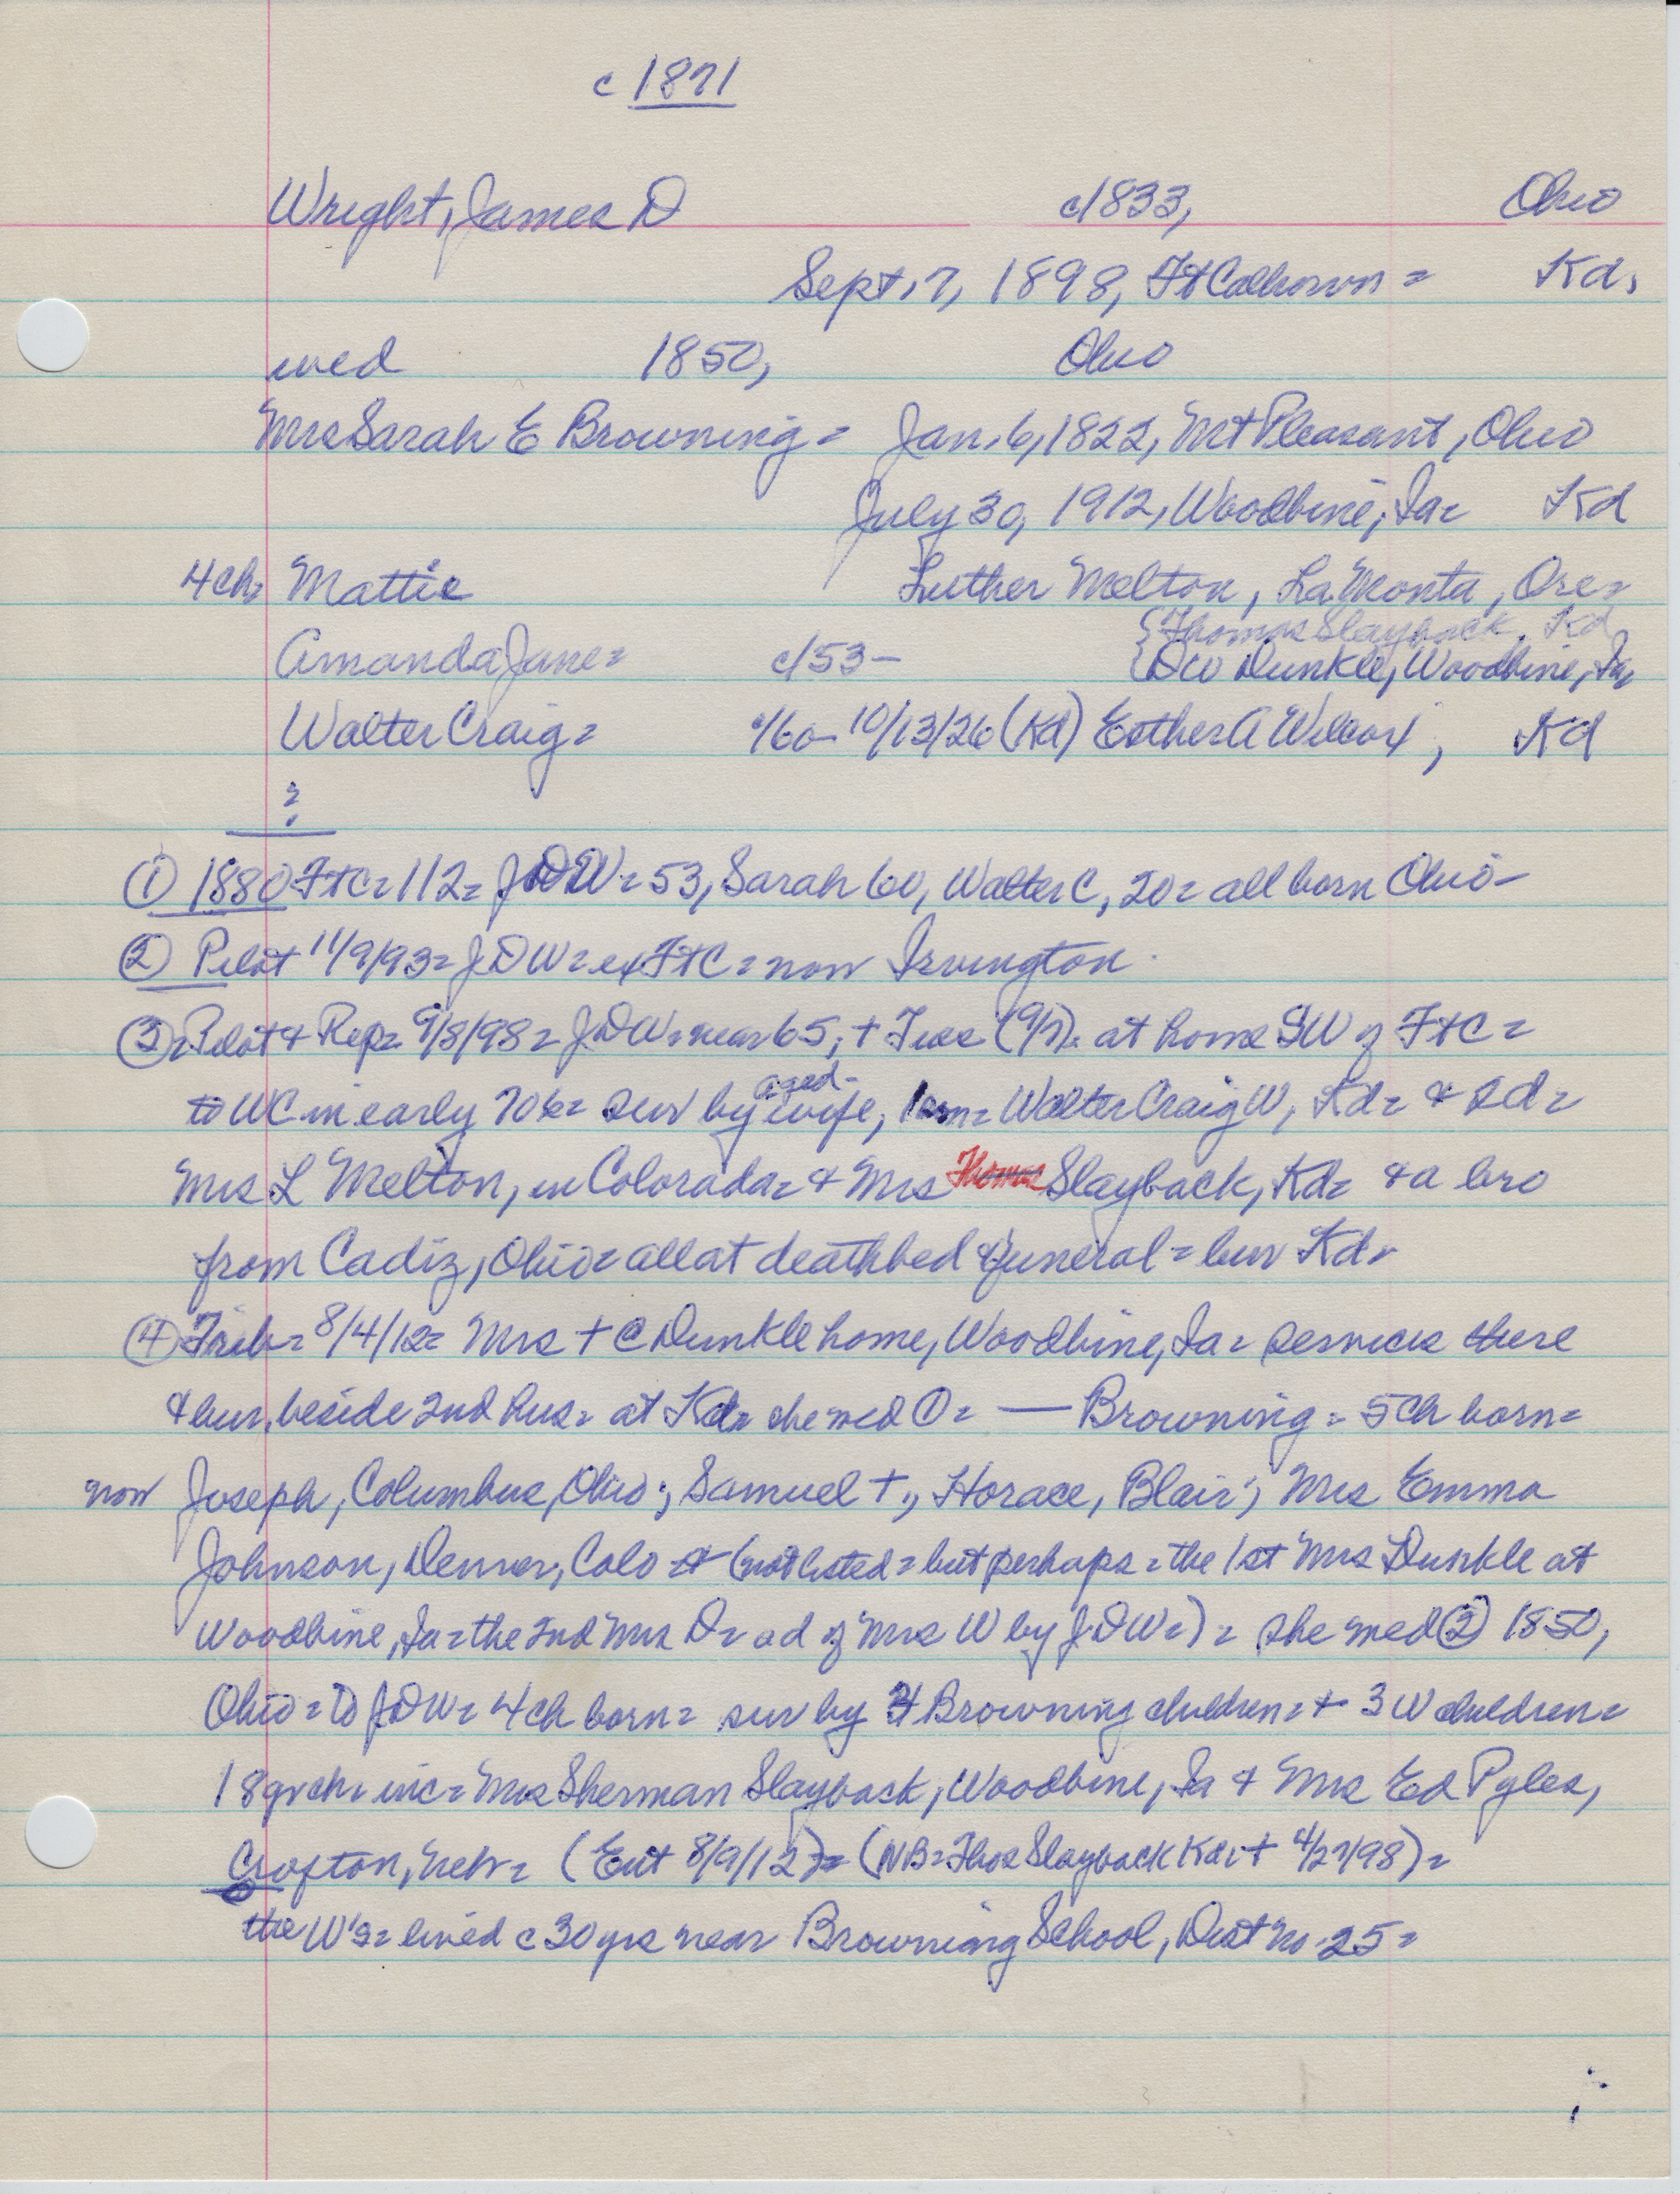 c 1871
Wright, James D c/1833, Ohio
Sept. 7, 1898, Ft Calhoun = Kd.
wed 1850, Ohio
Mrs Sarah E Browning = Jan. 6, 1822, Mt Pleasant, Ohio
July 30, 1912, Woodbine, Ia = Kd
4 ch = Mattie Luther Melton, La Monta, Ore =
{Thomas Slayback, Kd
Amanda Jane = c/53 — {DW Dunkle, Woodbine, Ia,
Walter Craig = c/60 - 10/13/26 (Kd) Esther A Wilcox, Kd
?
① 1880 FtC = 112 = JDW = 53, Sarah 60, Walter C, 20 = all born Ohio -
② Pilot 11/9/93 = JDW = ex FtC = now Irvington.
③ = Pilot & Rep = 9/8/98 = JDW = near 65, + Tues (9/7). at home SW of FtC =
to WC in early 70s = sur by aged wife, 1 son = Walter Craig W, Kd = & 2d =
Mrs L Melton, in Colorado = & Mrs Thomas Slayback, Kd = & a bro
from Cadiz, Ohio = all at deathbed & funeral = bur Kd =
④ Trib = 8/4/12 = Mrs + @ Dunkle home, Woodbine, Ia = services there
& bur. beside 2nd hus = at Kd = she wed ① = — Browning = 5 ch born =
now Joseph, Columbus, Ohio; Samuel +, Horace, Blair; Mrs Emma
Johnson, Denver, Colo & (not listed = but perhaps = the 1st Mrs Dunkle at
Woodbine, Ia = the 2nd Mrs D = a d of Mrs W by JDW =) = she wed ② 1850,
Ohio = to JDW = 4 ch born = sur by 4 Browning children = + 3 W children =
18 grch = inc = Mrs Sherman Slayback, Woodbine, Ia & Mrs Ed Pyles,
Crofton, Nebr = (Ent 8/9/12) = (NB = Thos Slayback Kd = + 4/27/98) =
the W's = lived c 30 yrs near Browning School, Dist No. 25 =